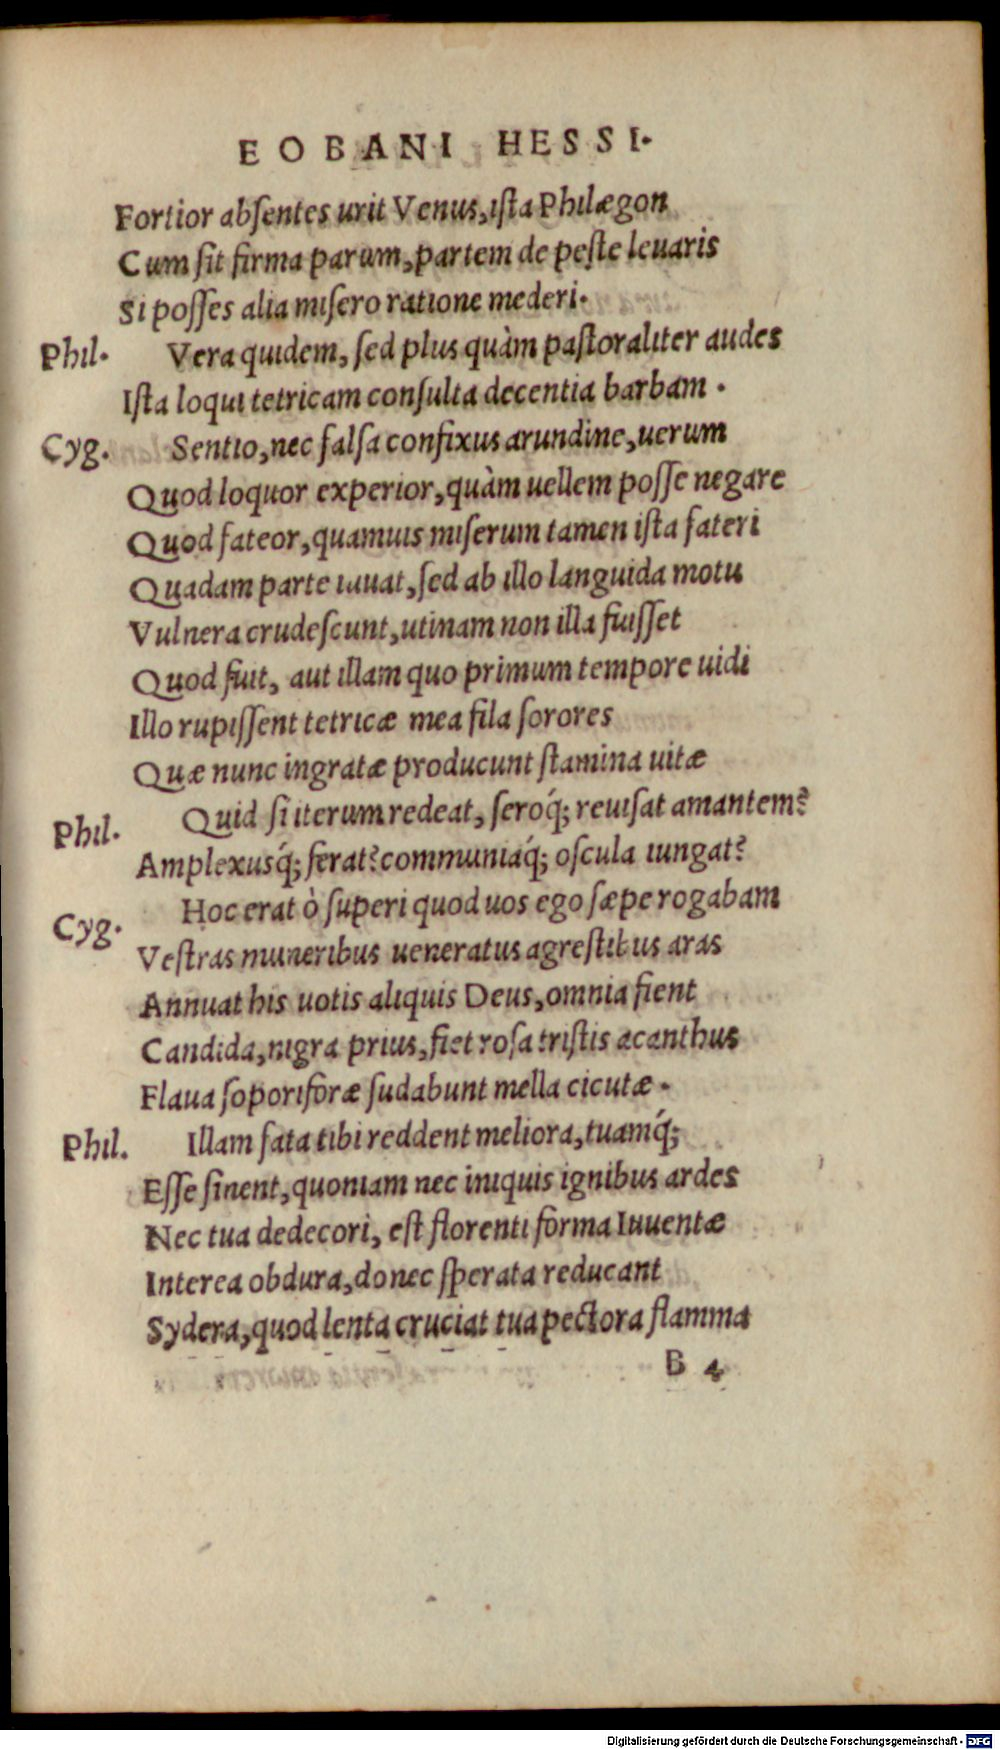 EOBANI HESSI.
Fortior absentes urit Venus, ista Philægon
Cum sit firma parum, partem de peste leuaris
Si posses alia misero ratione mederi.
Phil. Vera quidem, sed plus quàm pastoraliter audes
Ista loqui tetricam consulta decentia barbam.
Cyg. Sentio, nec falsa confixus arundine, uerum
Quod loquor experior, quàm uellem posse negare
Quod fateor, quamuis miserum tamen ista fateri
Quadam parte iuuat, sed ab illo languida motu
Vulnera crudescunt, utinam non illa fuisset
Quod fuit, aut illam quo primum tempore uidi
Illo rupissent tetricæ mea fila sorores
Quæ nunc ingratæ producunt stamina uitæ
Phil. Quid si iterum redeat, seroq́; reuisat amantem?
Amplexusq́; ferat? communiaq́; oscula iungat?
Cyg. Hoc erat ò superi quod uos ego sæpe rogabam
Vestras muneribus ueneratus agrestibus aras
Annuat his uotis aliquis Deus, omnia fient
Candida, nigra prius, fiet rosa tristis acanthus
Flaua soporiforæ sudabunt mella cicutæ.
Phil. Illam fata tibi reddent meliora, tuamq́;
Esse sinent, quoniam nec iniquis ignibus ardes
Nec tua dedecori, est florenti forma Iuuentæ
Interea obdura, donec sperata reducant
Sydera, quod lenta cruciat tua pectora flamma
B 4
Digitalisierung gefördert durch die Deutsche Forschungsgemeinschaft - DFG